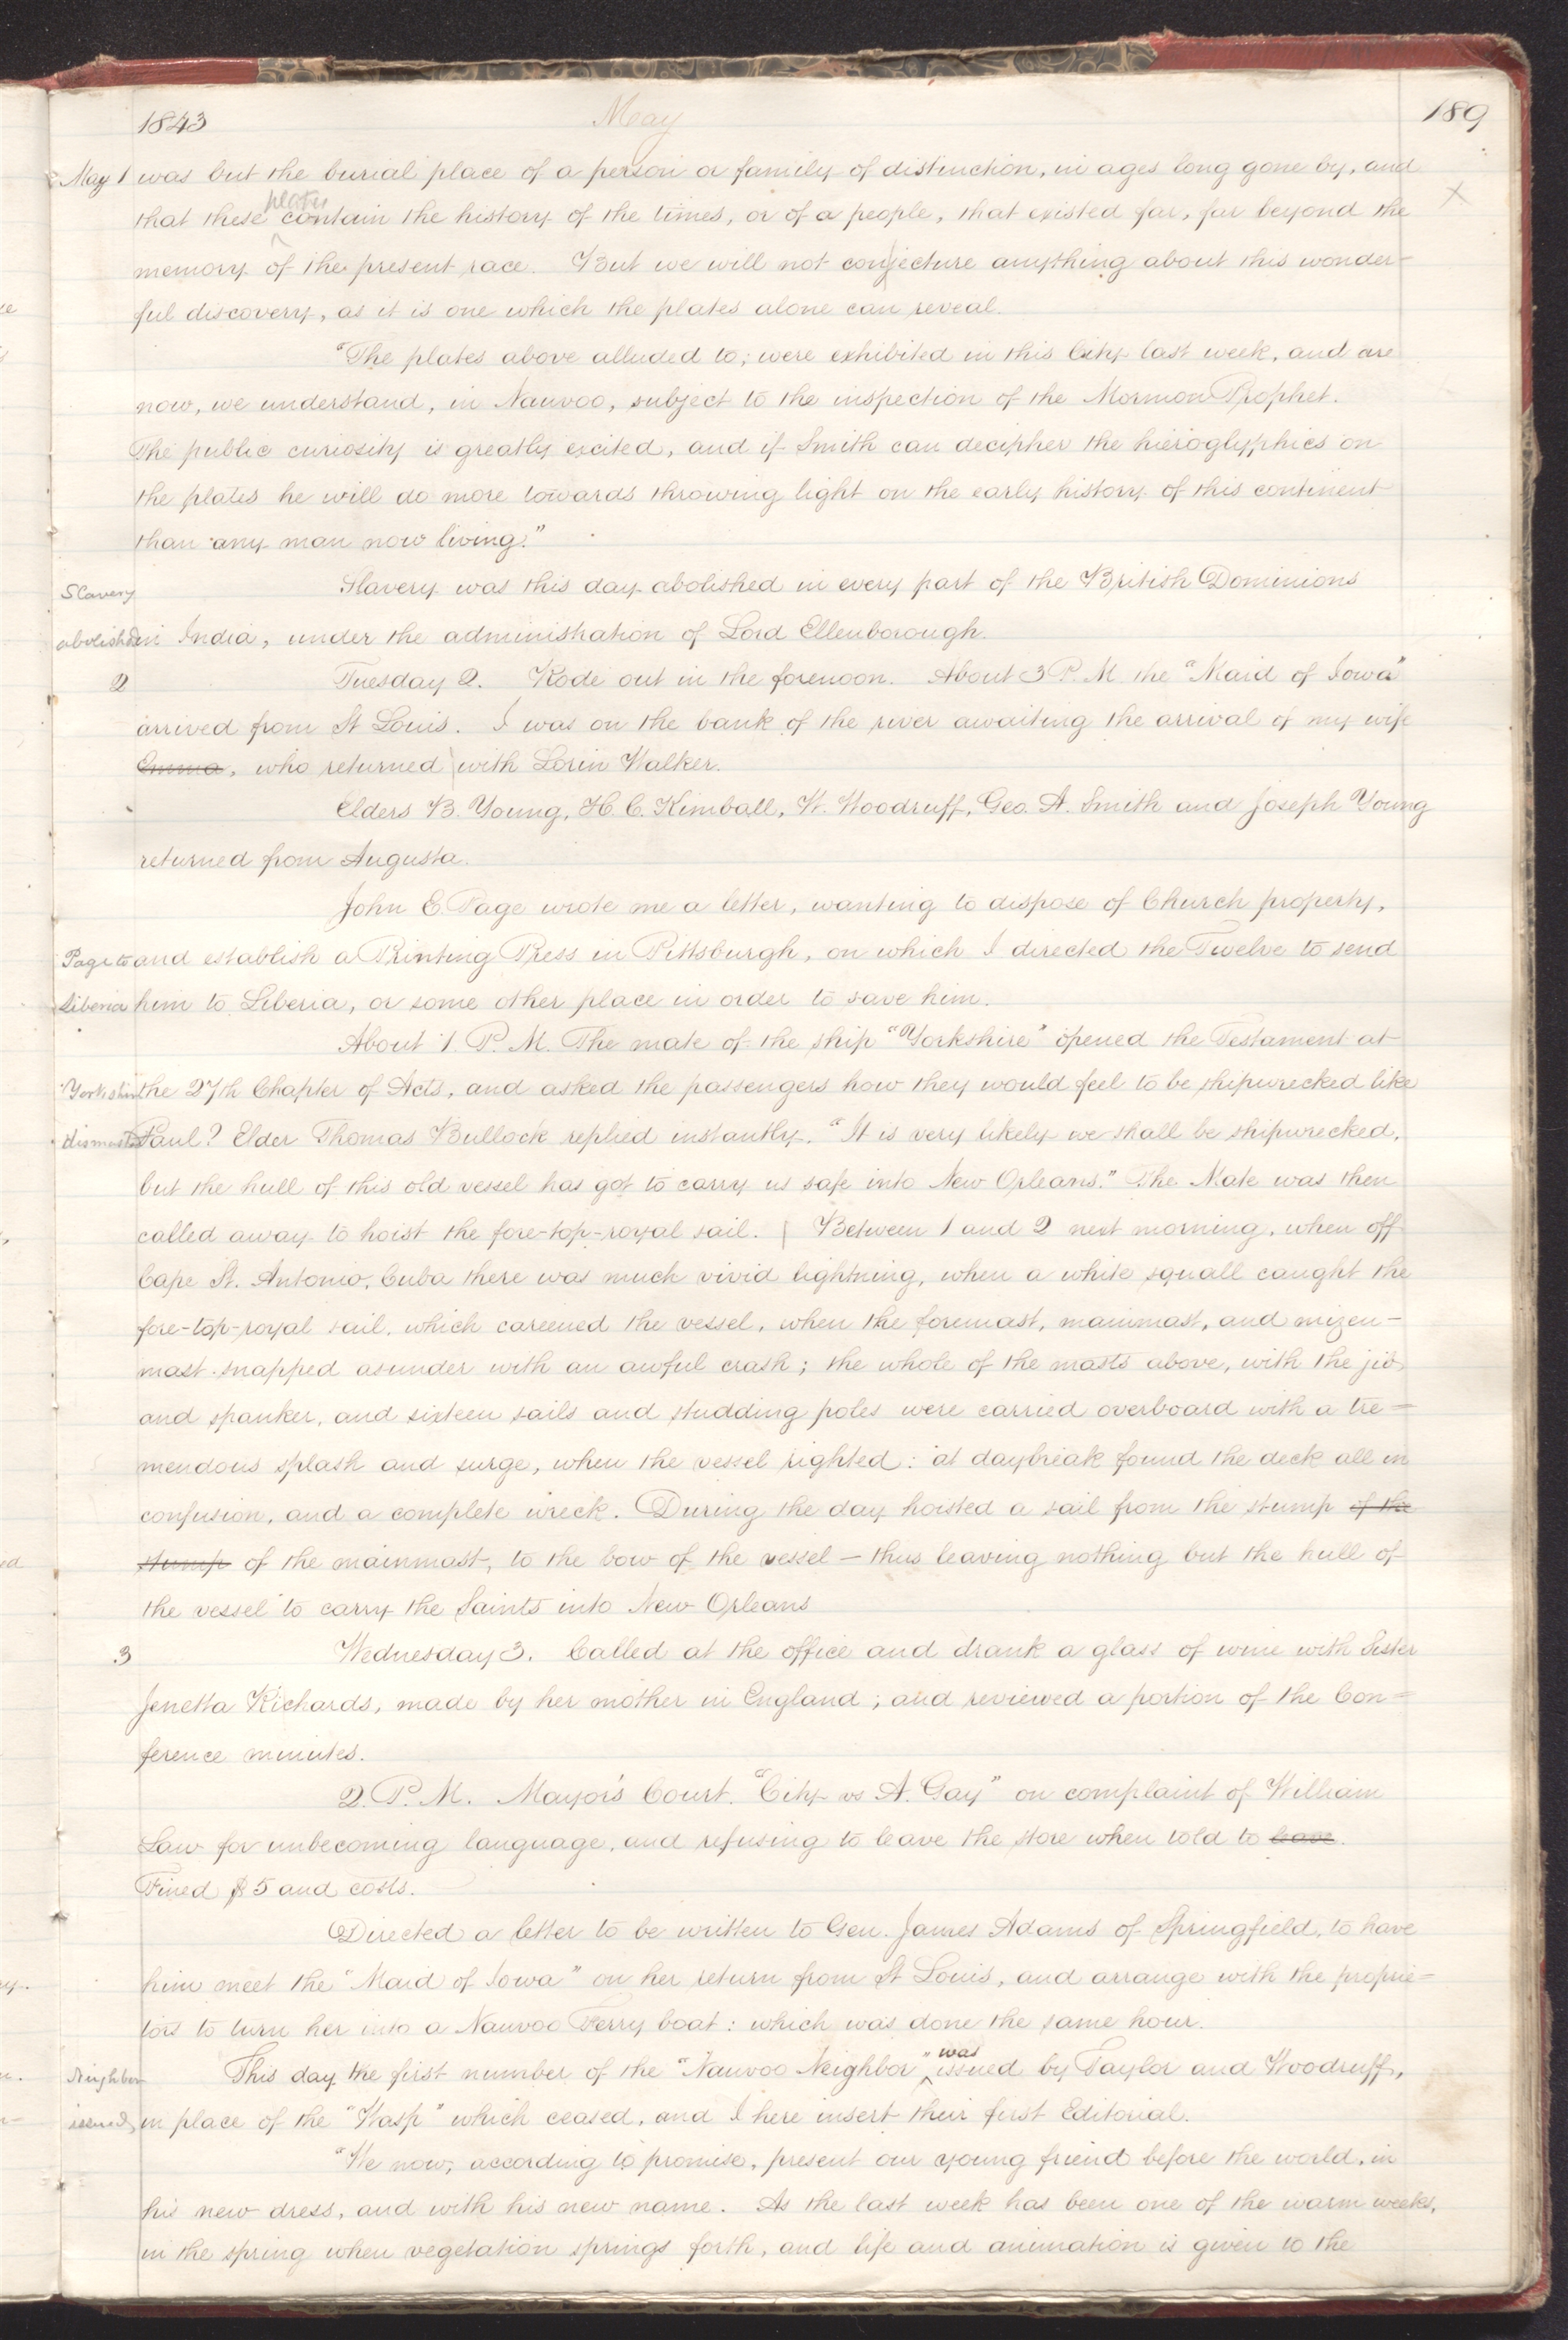 1843 May 189
May 1 was but the burial place of a person or family of distinction, in ages long gone by, and
plates
that these contain the history of the times, or of a people, that existed far, far beyond the
memory of the present race. But we will not conjecture anything about this wonder-
ful discovery, as it is one which the plates alone can reveal.
"The plates above alluded to; were exhibited in this City last week, and are
now, we understand, in Nauvoo, subject to the inspection of the Mormon Prophet.
The public curiosity is greatly excited, and if Smith can decipher the hieroglyphics on
the plates he will do more towards throwing light on the early history of this continent
than any man now living."
Slavery Slavery was this day abolished in every part of the British Dominions
abolished in India, under the administration of Lord Ellenborough.
2 Tuesday 2. Rode out in the forenoon. About 3 P. M. the "Maid of Iowa"
arrived from St Louis. I was on the bank of the river awaiting the arrival of my wife
Emma, who returned with Lorin Walker.
Elders B. Young, H. C. Kimball, W. Woodruff, Geo. A. Smith and Joseph Young
returned from Augusta.
John E. Page wrote me a letter, wanting to dispose of Church property,
Page to and establish a Printing Press in Pittsburgh, on which I directed the Twelve to send
Liberia him to Liberia, or some other place in order to save him.
About 1. P. M. The mate of the ship "Yorkshire" opened the Testament at
Yorkshire the 27th Chapter of Acts, and asked the passengers how they would feel to be shipwrecked like
dismasted Paul? Elder Thomas Bullock replied instantly. "It is very likely we shall be shipwrecked,
but the hull of this old vessel has got to carry us safe into New Orleans." The Mate was then
called away to hoist the fore-top-royal sail. Between 1 and 2 next morning, when off
Cape St. Antonio, Cuba there was much vivid lightning, when a white squall caught the
fore-top-royal sail, which careened the vessel, when the foremast, mainmast, and mizen-
mast snapped asunder with an awful crash; the whole of the masts above, with the jib
and spanker, and sixteen sails and studding poles were carried overboard with a tre=
mendous splash and surge, when the vessel righted: at daybreak found the deck all in
confusion, and a complete wreck. During the day hoisted a sail from the stump of the
stump of the mainmast, to the bow of the vessel — thus leaving nothing but the hull of
the vessel to carry the Saints into New Orleans
3 Wednesday 3. Called at the office and drank a glass of wine with Sister
Jenetta Richards, made by her mother in England; and reviewed a portion of the Con=
ference minutes.
2. P. M. Mayor's Court. "City vs A. Gay" on complaint of William
Law for unbecoming language, and refusing to leave the store when told to leave.
Fined $5 and costs.
Directed a letter to be written to Gen. James Adams of Springfield, to have
him meet the "Maid of Iowa" on her return from St Louis, and arrange with the proprie=
tors to turn her into a Nauvoo Ferry boat: which was done the same hour.
was
Neighbor This day the first number of the "Nauvoo Neighbor" issued by Taylor and Woodruff,
issued, in place of the "Wasp" which ceased, and I here insert their first Editorial.
"We now, according to promise, present our young friend before the world, in
his new dress, and with his new name. As the last week has been one of the warm weeks,
in the spring when vegetation springs forth, and life and animation is given to the